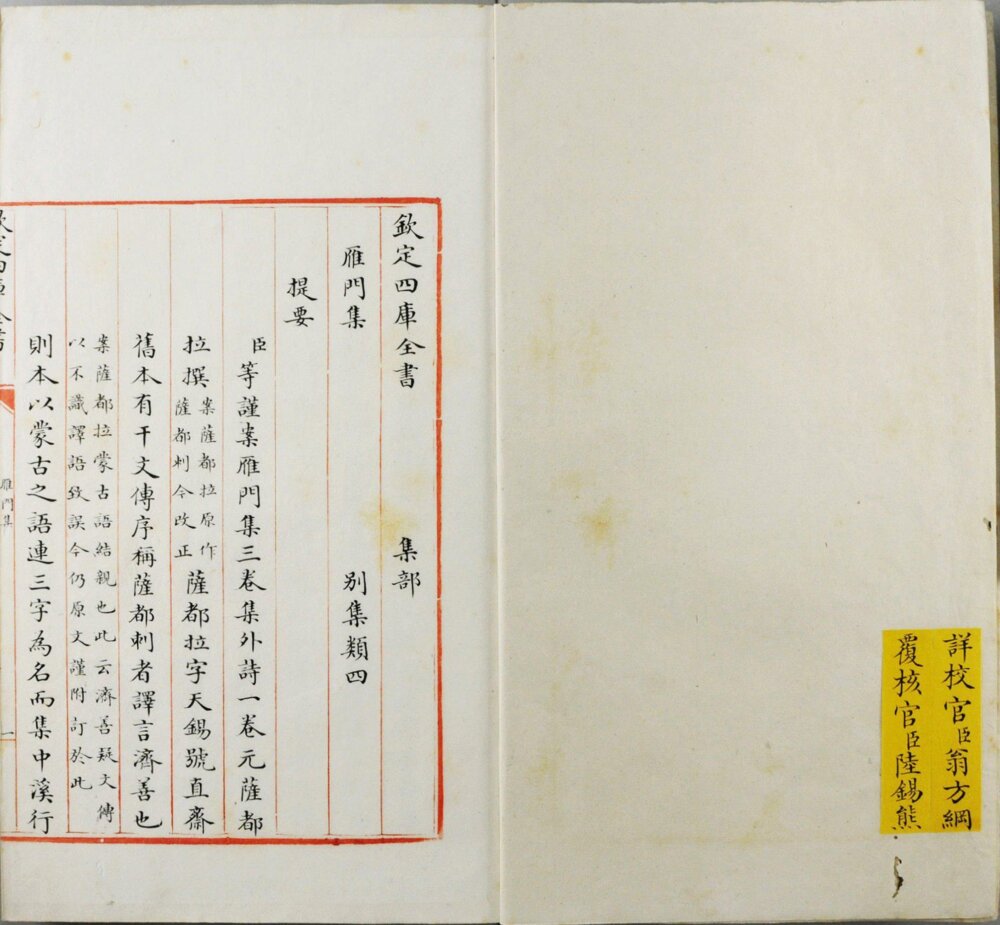 詳校官臣翁方綱
覆核官臣陸錫熊
欽定四庫全書 集部
雁門集 别集類四
提要
臣等謹案雁門集三卷集外詩一卷元薩都
拉撰案薩都拉原作薩都剌今改正薩都拉字天錫號直齋
舊本有干文傳序稱薩都剌者譯言濟善也
案薩都拉蒙古語結親也此云濟善疑文傳
以不識譯語致誤今仍原文謹附訂於此
則本以蒙古之語連三字為名而集中溪行
欽定四庫全書
雁門集
一